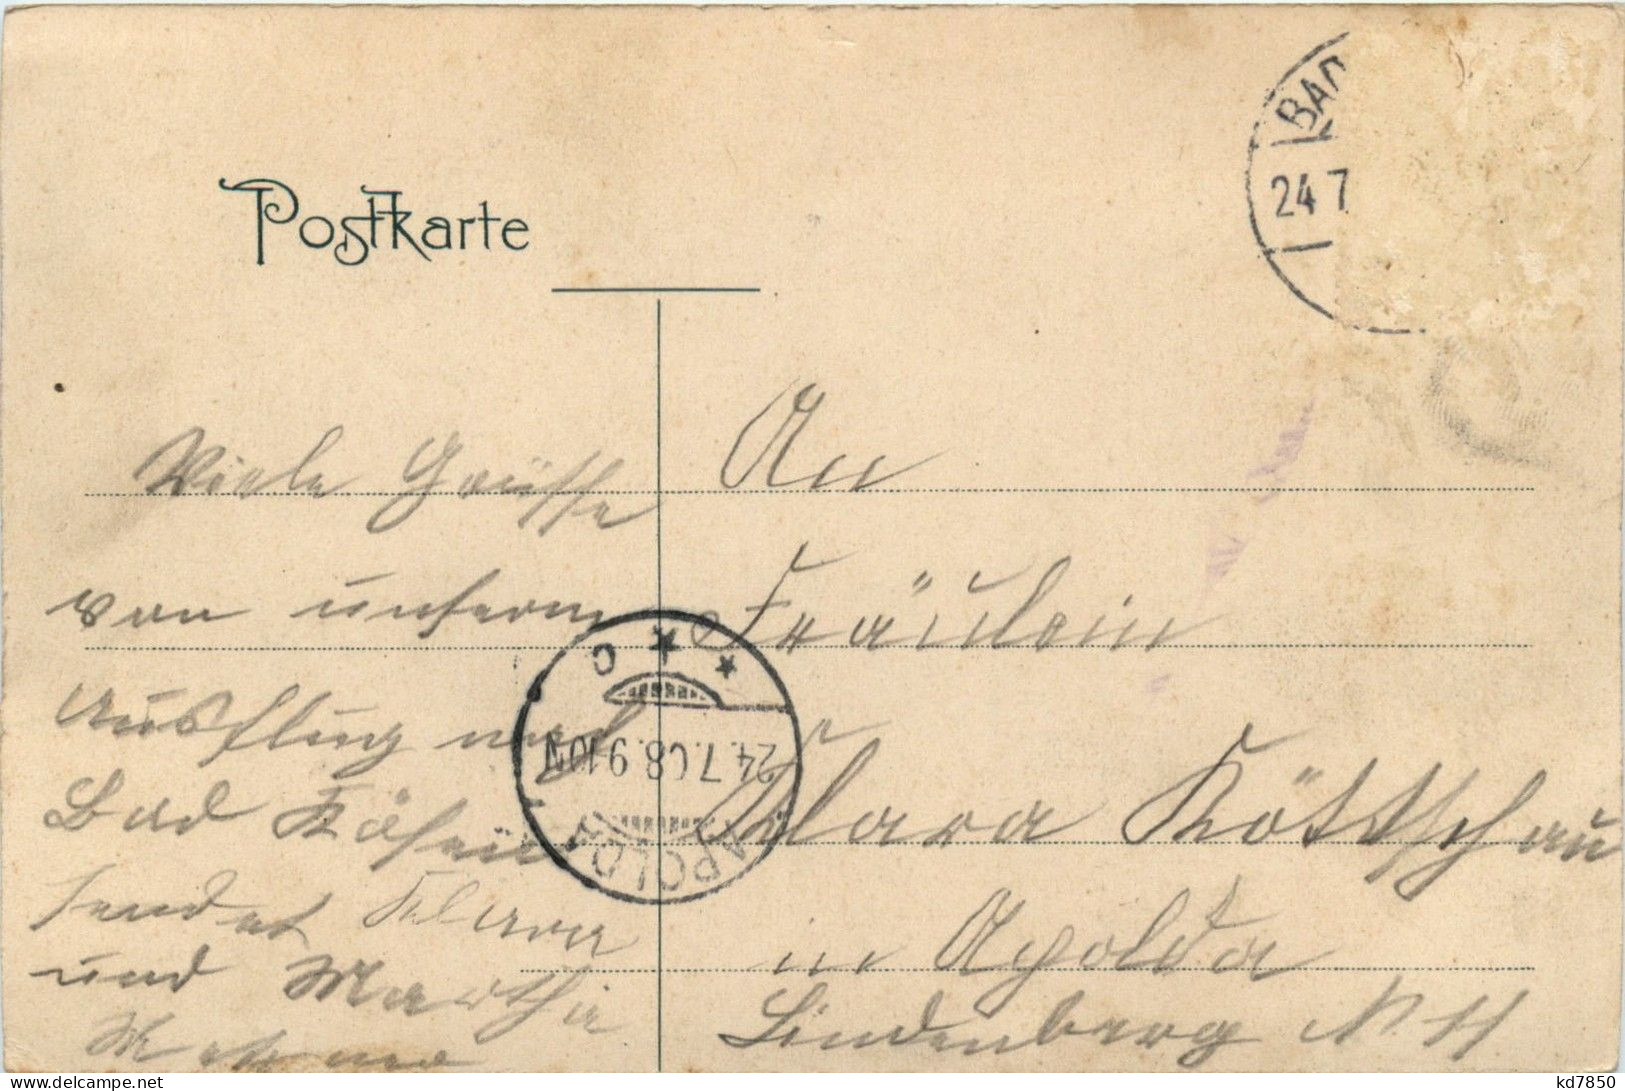 Postkarte
BAD
24 7
Viele Grüsse
von unserm
Ausflug nach
Bad Kösen
sendet Klara
und Martha
An
Fräulein
Klara Köttschau
in Apolda
Lindenberg N 11
* C *
24.7.08.9-10N
APOLDA
delcampe.net
kd7850